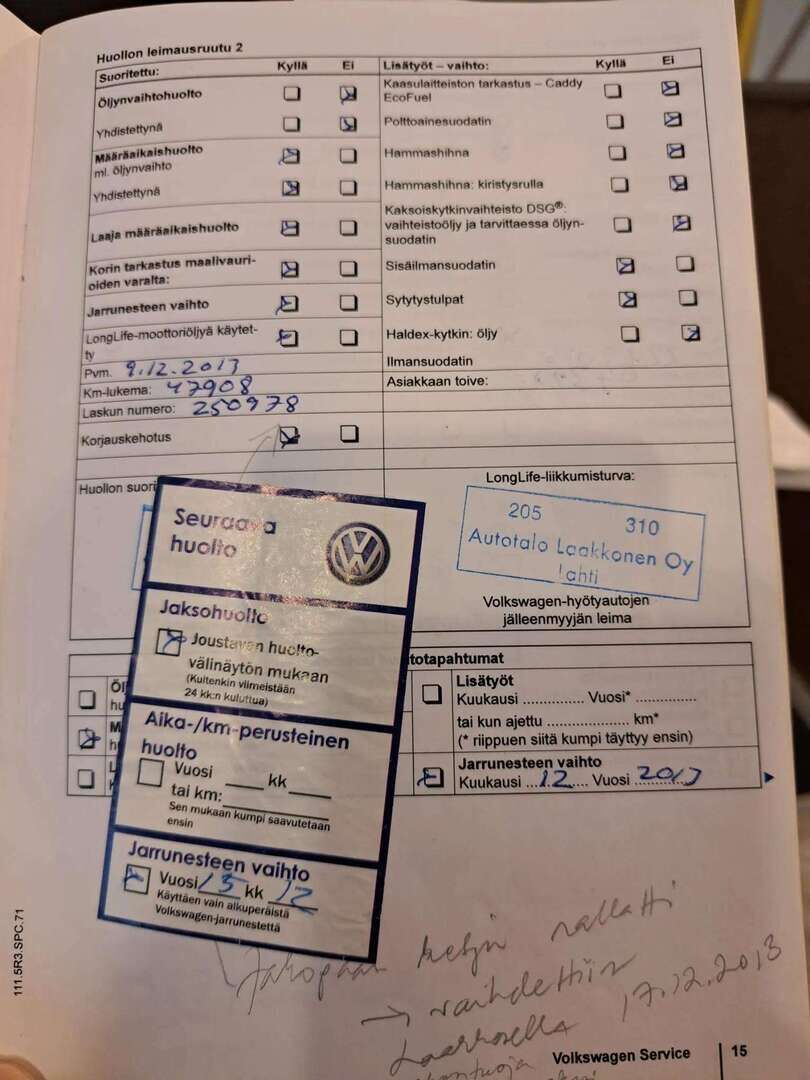 Huollon leimausruutu 2
Suoritettu: Kyllä Ei
Öljynvaihtohuolto
Yhdistettynä
Määräaikaishuolto
ml. öljynvaihto
Yhdistettynä
Laaja määräaikaishuolto
Korin tarkastus maalivauri-
oiden varalta:
Jarrunesteen vaihto
LongLife-moottoriöljyä käytet-
ty
Pvm. 9.12.2013
Km-lukema: 47908
Laskun numero: 250978
Korjauskehotus
Huollon suori
Lisätyöt – vaihto: Kyllä Ei
Kaasulaitteiston tarkastus – Caddy
EcoFuel
Polttoainesuodatin
Hammashihna
Hammashihna: kiristysrulla
Kaksoiskytkinvaihteisto DSG®:
vaihteistoöljy ja tarvittaessa öljyn-
suodatin
Sisäilmansuodatin
Sytytystulpat
Haldex-kytkin: öljy
Ilmansuodatin
Asiakkaan toive:
LongLife-liikkumisturva:
205 310
Autotalo Laakkonen Oy
Lahti
Volkswagen-hyötyautojen
jälleenmyyjän leima
Seuraava
huolto
Jaksohuolto
Joustavan huolto-
välinäytön mukaan
(Kuitenkin viimeistään
24 kk:n kuluttua)
Aika-/km-perusteinen
huolto
Vuosi ____ kk ____
tai km:
Sen mukaan kumpi saavutetaan
ensin
Jarrunesteen vaihto
Vuosi 15 kk 12
Käyttäen vain alkuperäistä
Volkswagen-jarrunestettä
totapahtumat
Lisätyöt
Kuukausi ............... Vuosi* ...............
tai kun ajettu .................... km*
(* riippuen siitä kumpi täyttyy ensin)
Jarrunesteen vaihto
Kuukausi ...12... Vuosi 2017
Jakopään ketju rallatti
→ vaihdettiin
Laakkosella 17.12.2013
111.5R3.SPC.71
Volkswagen Service 15